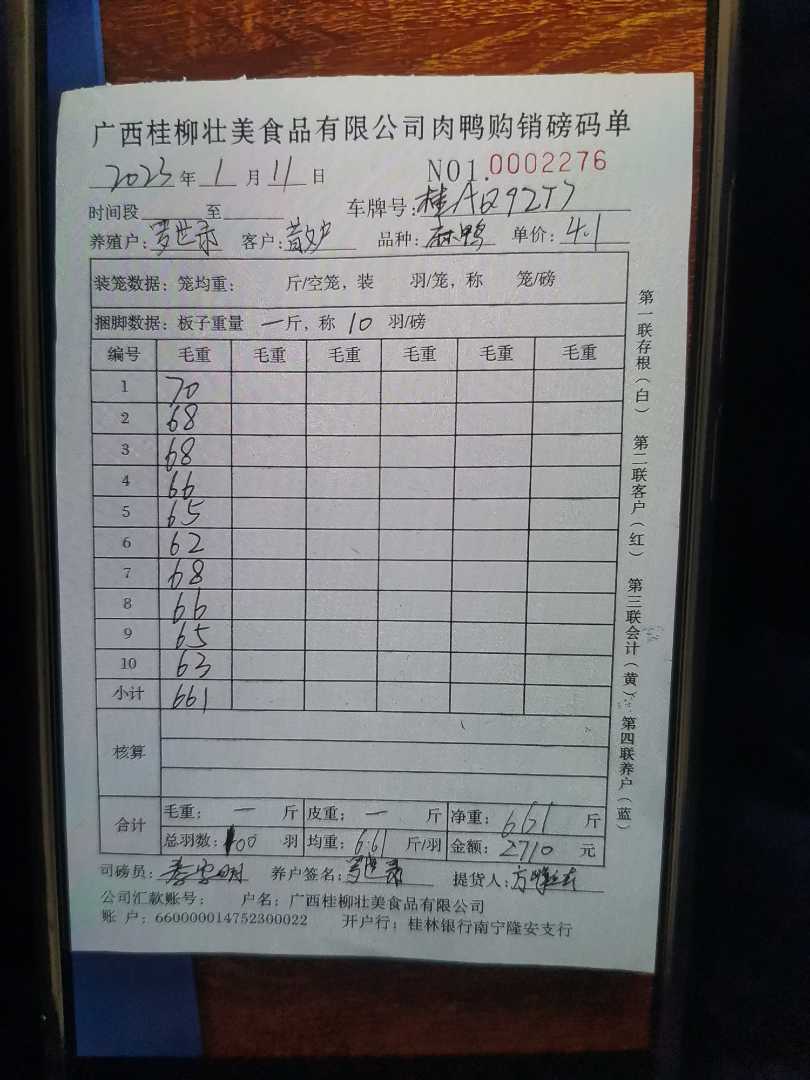 广西桂柳壮美食品有限公司肉鸭购销磅码单
2023年1月11日 NO1.0002276
时间段 至 车牌号:桂A
养殖户:罗世录 客户: 品种:麻鸭 单价:4.1
装笼数据:笼均重: 斤/空笼,装 羽/笼,称 笼/磅
捆脚数据:板子重量 一斤,称10 羽/磅
编号 毛重 毛重 毛重 毛重 毛重 毛重
1 70
2 68
3 68
4 66
5 65
6 62
7 68
8 66
9 65
10 63
小计 661
核算
合计 毛重: 一 斤 皮重: 一 斤 净重: 661 斤
总羽数:100 羽 均重:6.61 斤/羽 金额:2710 元
司磅员: 养户签名:罗世录 提货人:方
公司汇款账号: 户名:广西桂柳壮美食品有限公司
账 户:660000014752300022 开户行:桂林银行南宁隆安支行
第一联存根(白) 第二联客户(红) 第三联会计(黄) 第四联养户(蓝)